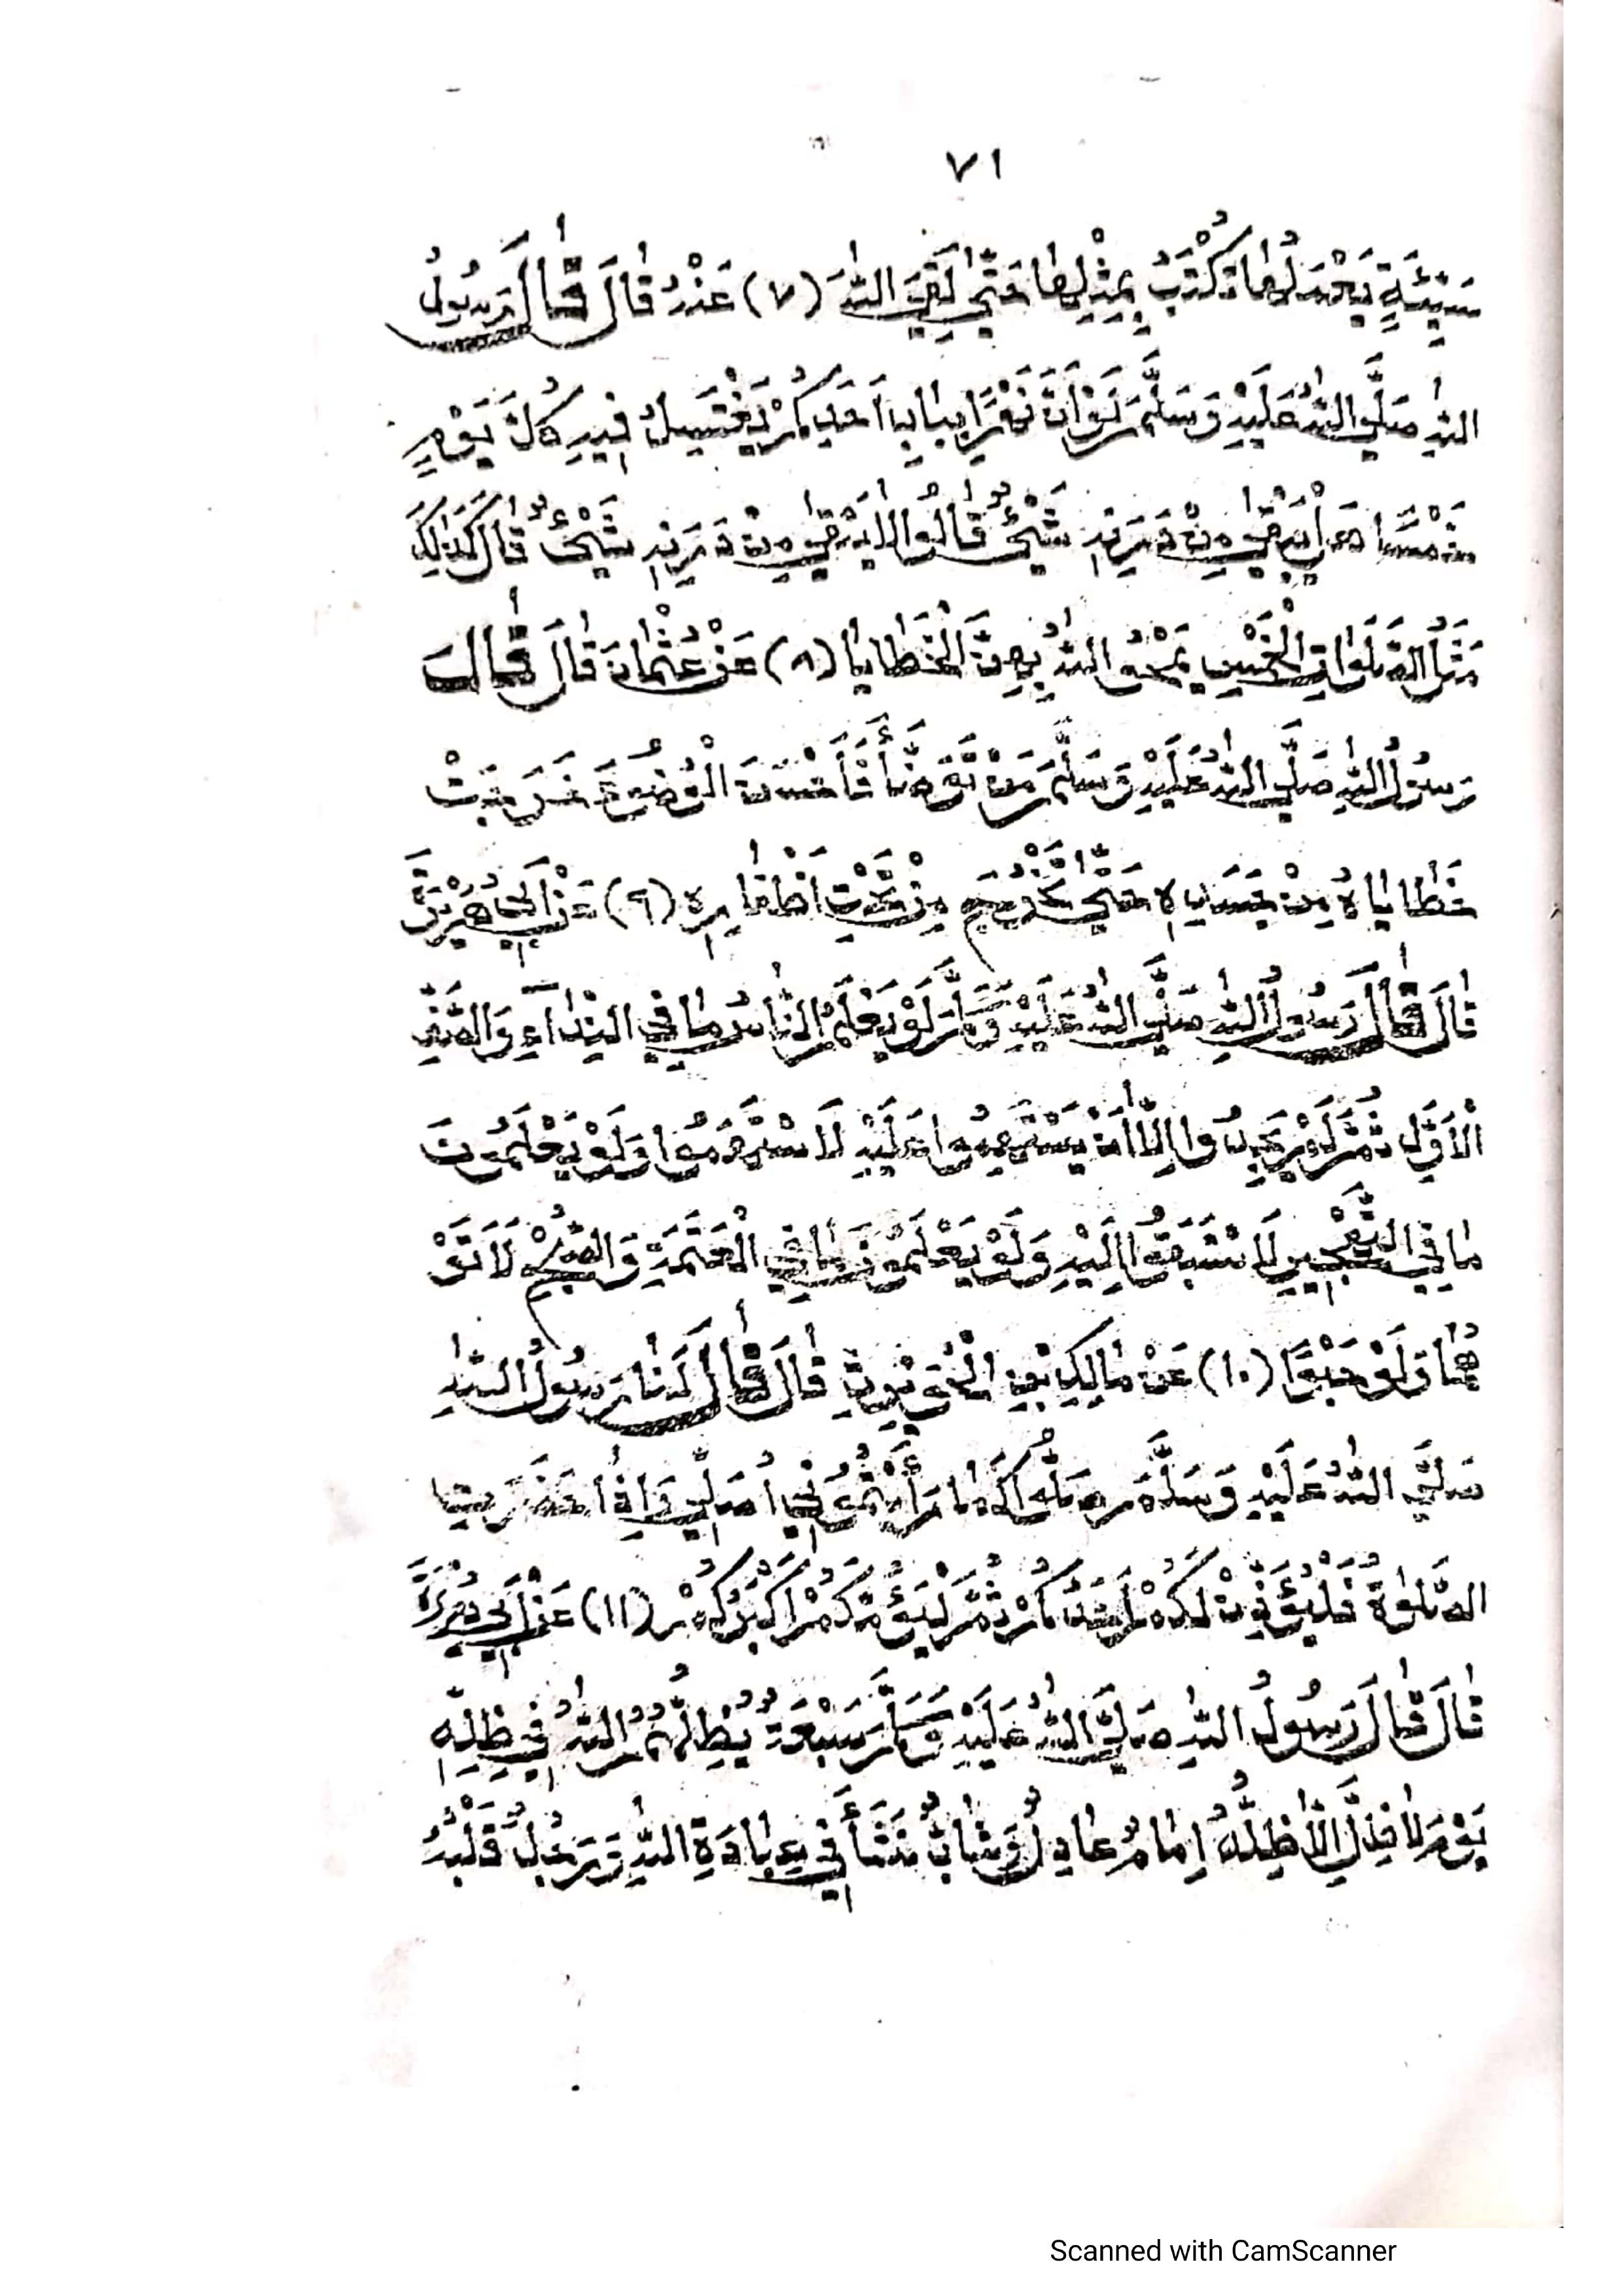 ٧١
سَيِّئَةٍ يَعْمَلُهَا تُكْتَبُ بِمِثْلِهَا حَتّٰى لَقِيَ اللّٰهَ (٧) عَنْهُ قَالَ قَالَ رَسُولُ
اللّٰهِ صَلَّى اللّٰهُ عَلَيْهِ وَسَلَّمَ لَوْ اَنَّ نَهْرًا بِبَابِ اَحَدِكُمْ يَغْتَسِلُ فِيهِ كُلَّ يَوْمٍ
خَمْسًا هَلْ يَبْقٰى مِنْ دَرَنِهِ شَيْئٌ قَالُوا لَا يَبْقٰى مِنْ دَرَنِهِ شَيْئٌ قَالَ كَذٰلِكَ
مَثَلُ الصَّلَوَاتِ الْخَمْسِ يَمْحُو اللّٰهُ بِهِنَّ الْخَطَايَا (٨) عَنْ عُثْمَانَ قَالَ قَالَ
رَسُولُ اللّٰهِ صَلَّى اللّٰهُ عَلَيْهِ وَسَلَّمَ مَنْ تَوَضَّأَ فَأَحْسَنَ الْوُضُوءَ خَرَجَتْ
خَطَايَاهُ مِنْ جَسَدِهِ حَتّٰى تَخْرُجَ مِنْ تَحْتِ اَظْفَارِهِ (٩) عَنْ اَبِي هُرَيْرَةَ
قَالَ قَالَ رَسُولُ اللّٰهِ صَلَّى اللّٰهُ عَلَيْهِ وَسَلَّمَ لَوْ يَعْلَمُ النَّاسُ مَا فِي النِّدَآءِ وَالصَّفِّ
الْاَوَّلِ ثُمَّ لَمْ يَجِدُوا اِلَّا اَنْ يَسْتَهِمُوا عَلَيْهِ لَاسْتَهَمُوا وَلَوْ يَعْلَمُونَ
مَا فِي التَّهْجِيرِ لَاسْتَبَقُوا اِلَيْهِ وَلَوْ يَعْلَمُونَ مَا فِي الْعَتَمَةِ وَالصُّبْحِ لَاَتَوْ
هُمَا وَلَوْ حَبْوًا (١٠) عَنْ مَالِكِ بْنِ الْحُوَيْرِثِ قَالَ قَالَ لَنَا رَسُولُ اللّٰهِ
صَلَّى اللّٰهُ عَلَيْهِ وَسَلَّمَ صَلُّوا كَمَا رَأَيْتُمُونِي اُصَلِّي وَاِذَا حَضَرَتِ
الصَّلٰوةُ فَلْيُؤَذِّنْ لَكُمْ اَحَدُكُمْ ثُمَّ لْيَؤُمَّكُمْ اَكْبَرُكُمْ (١١) عَنْ اَبِي هُرَيْرَةَ
قَالَ قَالَ رَسُولُ اللّٰهِ صَلَّى اللّٰهُ عَلَيْهِ وَسَلَّمَ سَبْعَةٌ يُظِلُّهُمُ اللّٰهُ فِي ظِلِّهِ
يَوْمَ لَا ظِلَّ اِلَّا ظِلُّهُ اِمَامٌ عَادِلٌ وَشَابٌّ نَشَأَ فِي عِبَادَةِ اللّٰهِ وَرَجُلٌ قَلْبُهُ
Scanned with CamScanner